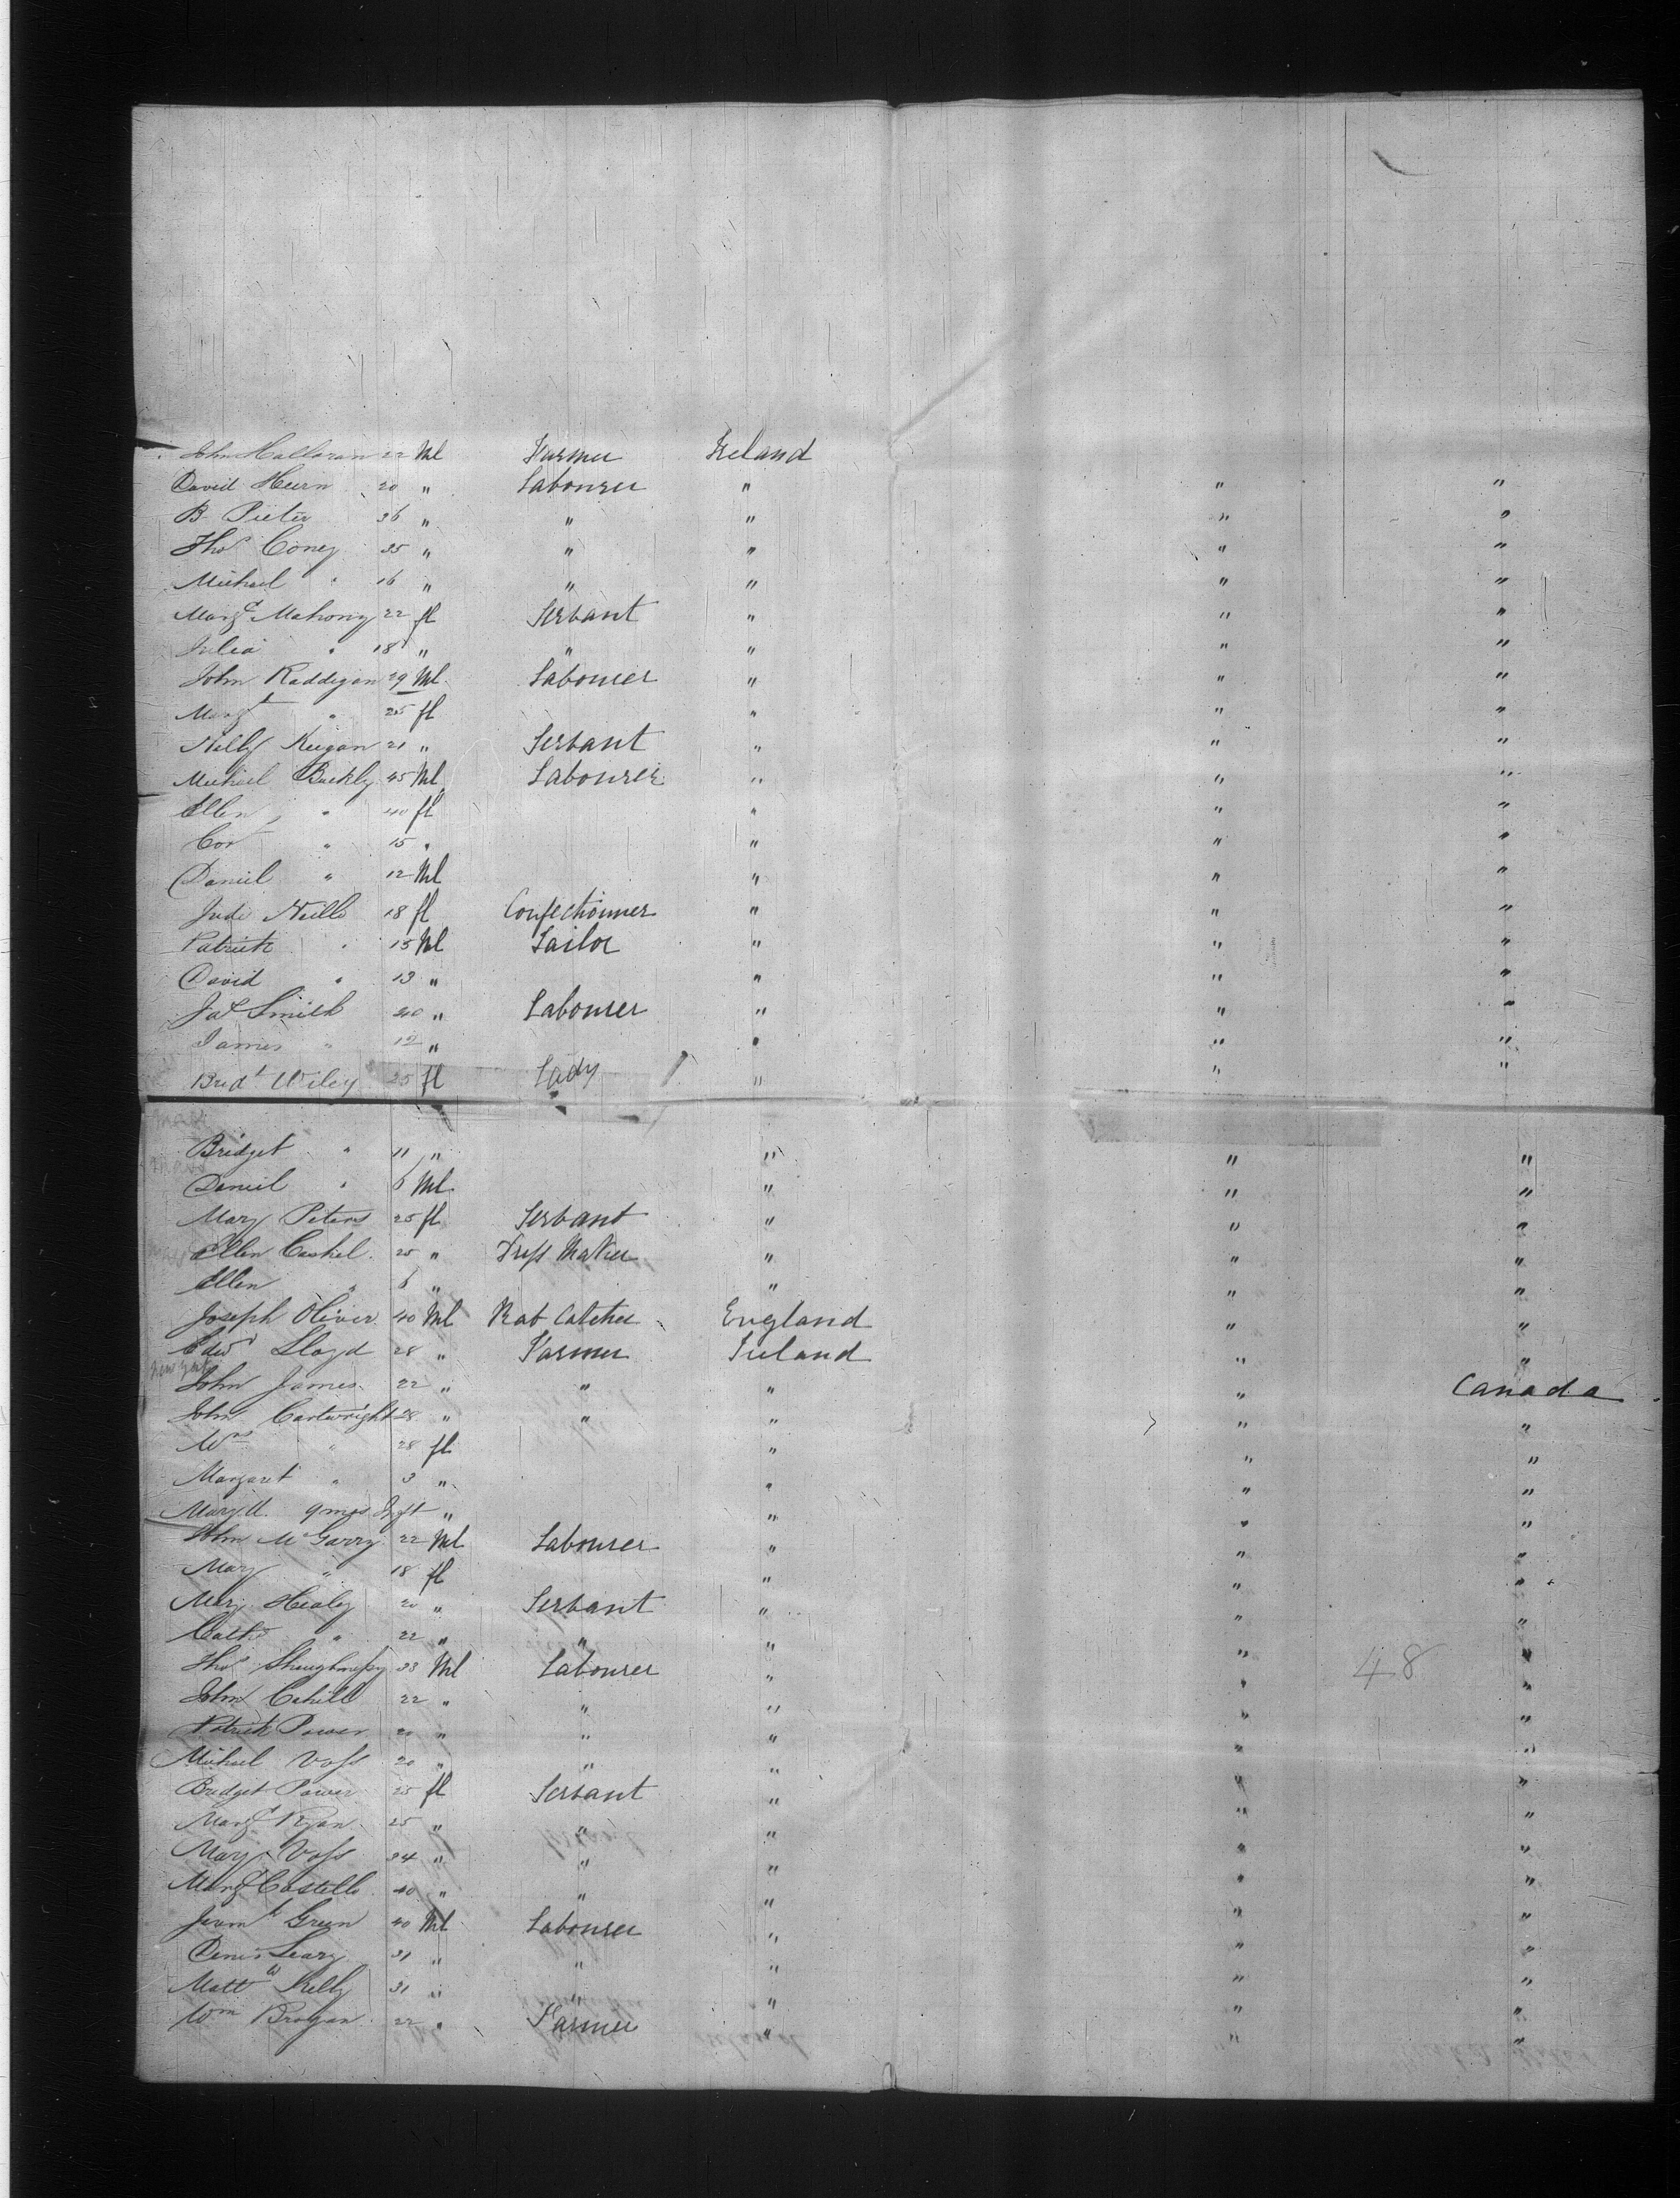 John Halloran 22 Ml Farmer Ireland
David Hurn 20 " Labourer " " "
B Pieter 36 " " " " "
Thos Coney 35 " " " " "
Michael " 16 " " " " "
Margt Mahony 22 fl Servant " " "
Julia " 18 " " " " "
John Raddigan 29 Ml Labourer " " "
Margt " 25 fl " " "
Nelly Keegan 21 " Servant " " "
Michael Buckly 45 Ml Labourer " " "
Ellen " 40 fl " " "
Cor " 15 " " " "
Daniel " 12 Ml " " "
Judi Neille 18 fl Confectionner " " "
Patrick " 15 Ml Tailor " " "
David " 13 " " " "
Jas Smith 40 " Labourer " " "
James " 12 " " " "
Bridt Wiley 25 fl Lady " " "
Bridget " 11 " " " "
Daniel " 6 Ml " " "
Mary Peters 25 fl Servant " " "
Ellen Cashel 25 " Dress Maker " " "
Ellen " 6 " " " "
Joseph Oliver 40 Ml Rat Catcher England " "
Edwd Lloyd 28 " Farmer Ireland " "
New York
John James 22 " " " " Canada
John Cartwright 28 " " " " "
Mrs " 28 fl " " "
Margaret " 3 " " " "
Mary A. 9 mos Inft " " " "
John McGarry 22 Ml Labourer " " "
Mary " 18 fl " " "
Mary Healey 20 " Servant " " "
Cathe " 22 " " " " "
Thos Shaughnessy 33 Ml Labourer " " 48 "
John Cahill 22 " " " " "
Patrick Power 20 " " " " "
Michael Voss 20 " " " " "
Bridget Power 25 fl Servant " " "
Margt Ryan 25 " " " " "
Mary Voss 24 " " " " "
Margt Costello 40 " " " " "
Jeremh Green 40 Ml Labourer " " "
Denis Leary 31 " " " " "
Mattw Kelly 31 " " " " "
Wm Brogan 22 " Farmer " " "